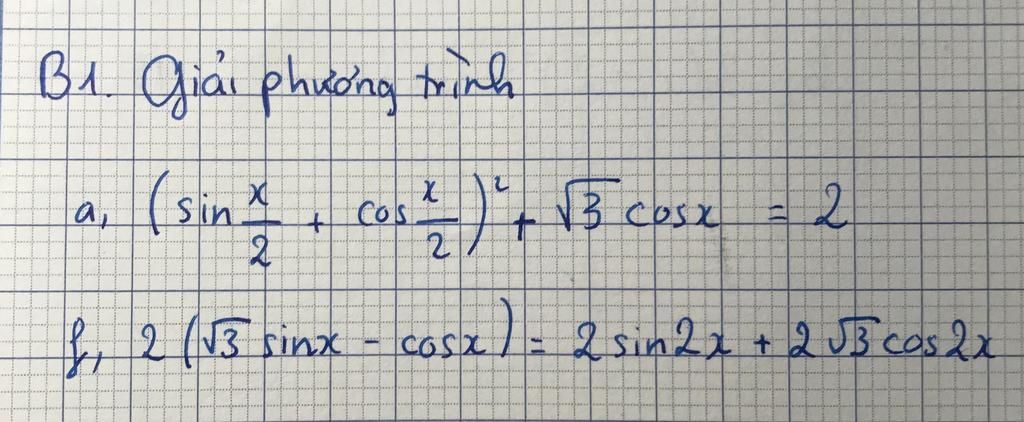 B1. Giải phương trình
a, (sin x/2 + cos x/2)² + √3 cosx = 2
f, 2(√3 sinx - cosx) = 2 sin2x + 2√3 cos2x